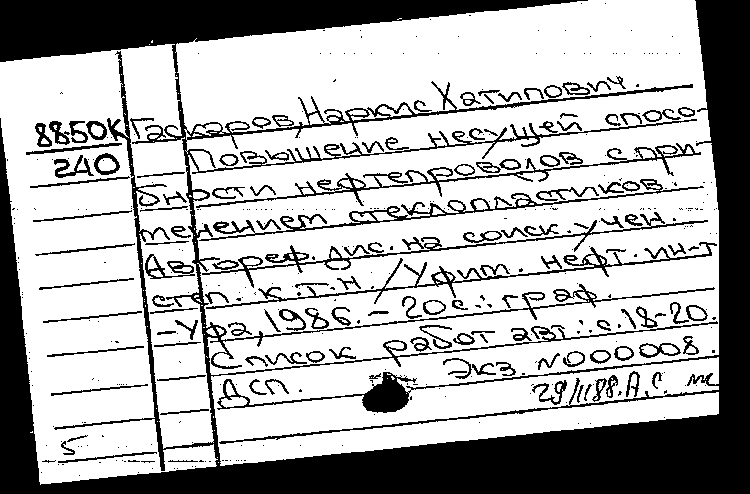 88-50К Гаскаров, Наркис Хатипович.
240 Повышение несущей спосо-
бности нефтепроводов с при-
менением стеклопластиков:
Автореф. дис. на соиск. учен.
степ. к.т.н. / Уфим. нефт. ин-т
-Уфа, 1986. - 20с.: граф.
Список работ авт.: с.18-20.
ДСП. Экз. N000008.
29/1188. А.С.
5